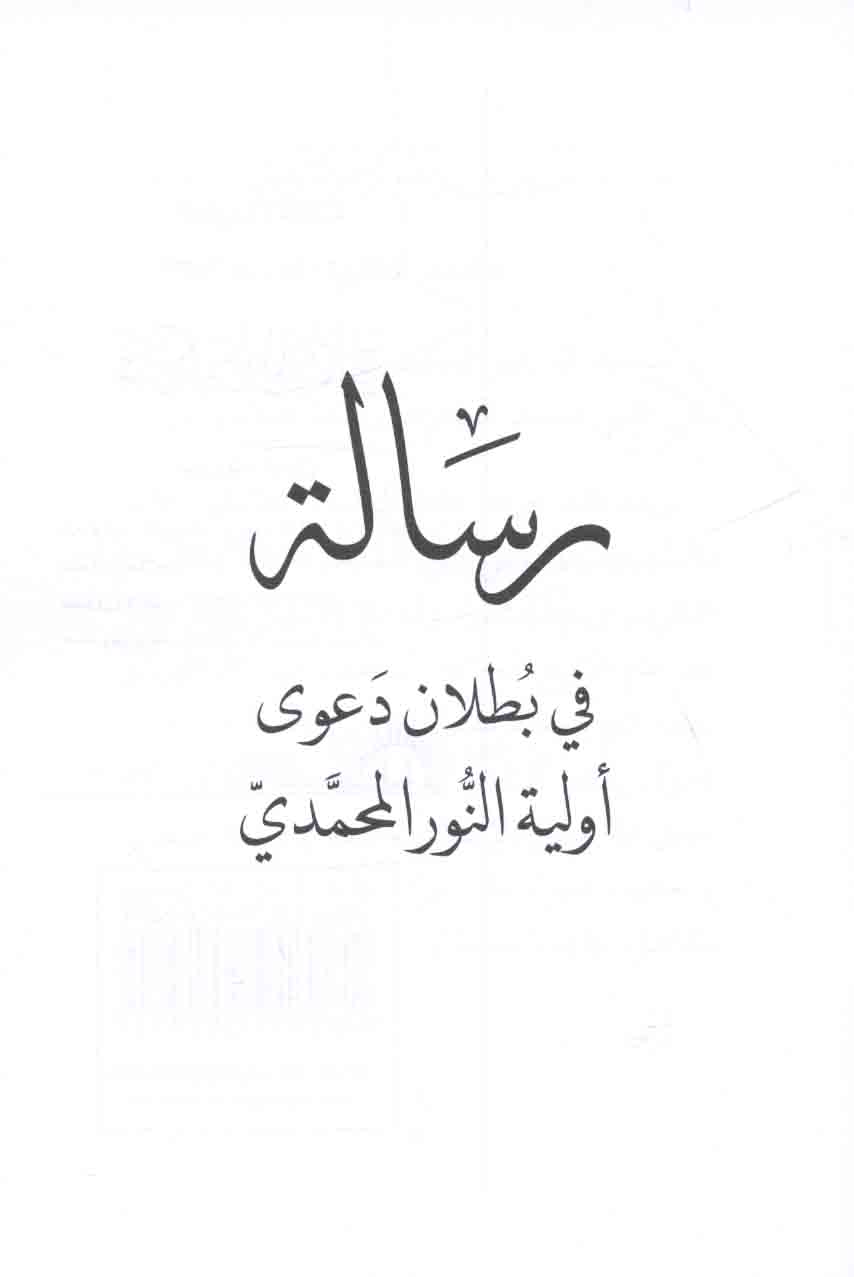 رسَالة
في بُطلان دَعوى
أولية النُّور المحمَّديّ